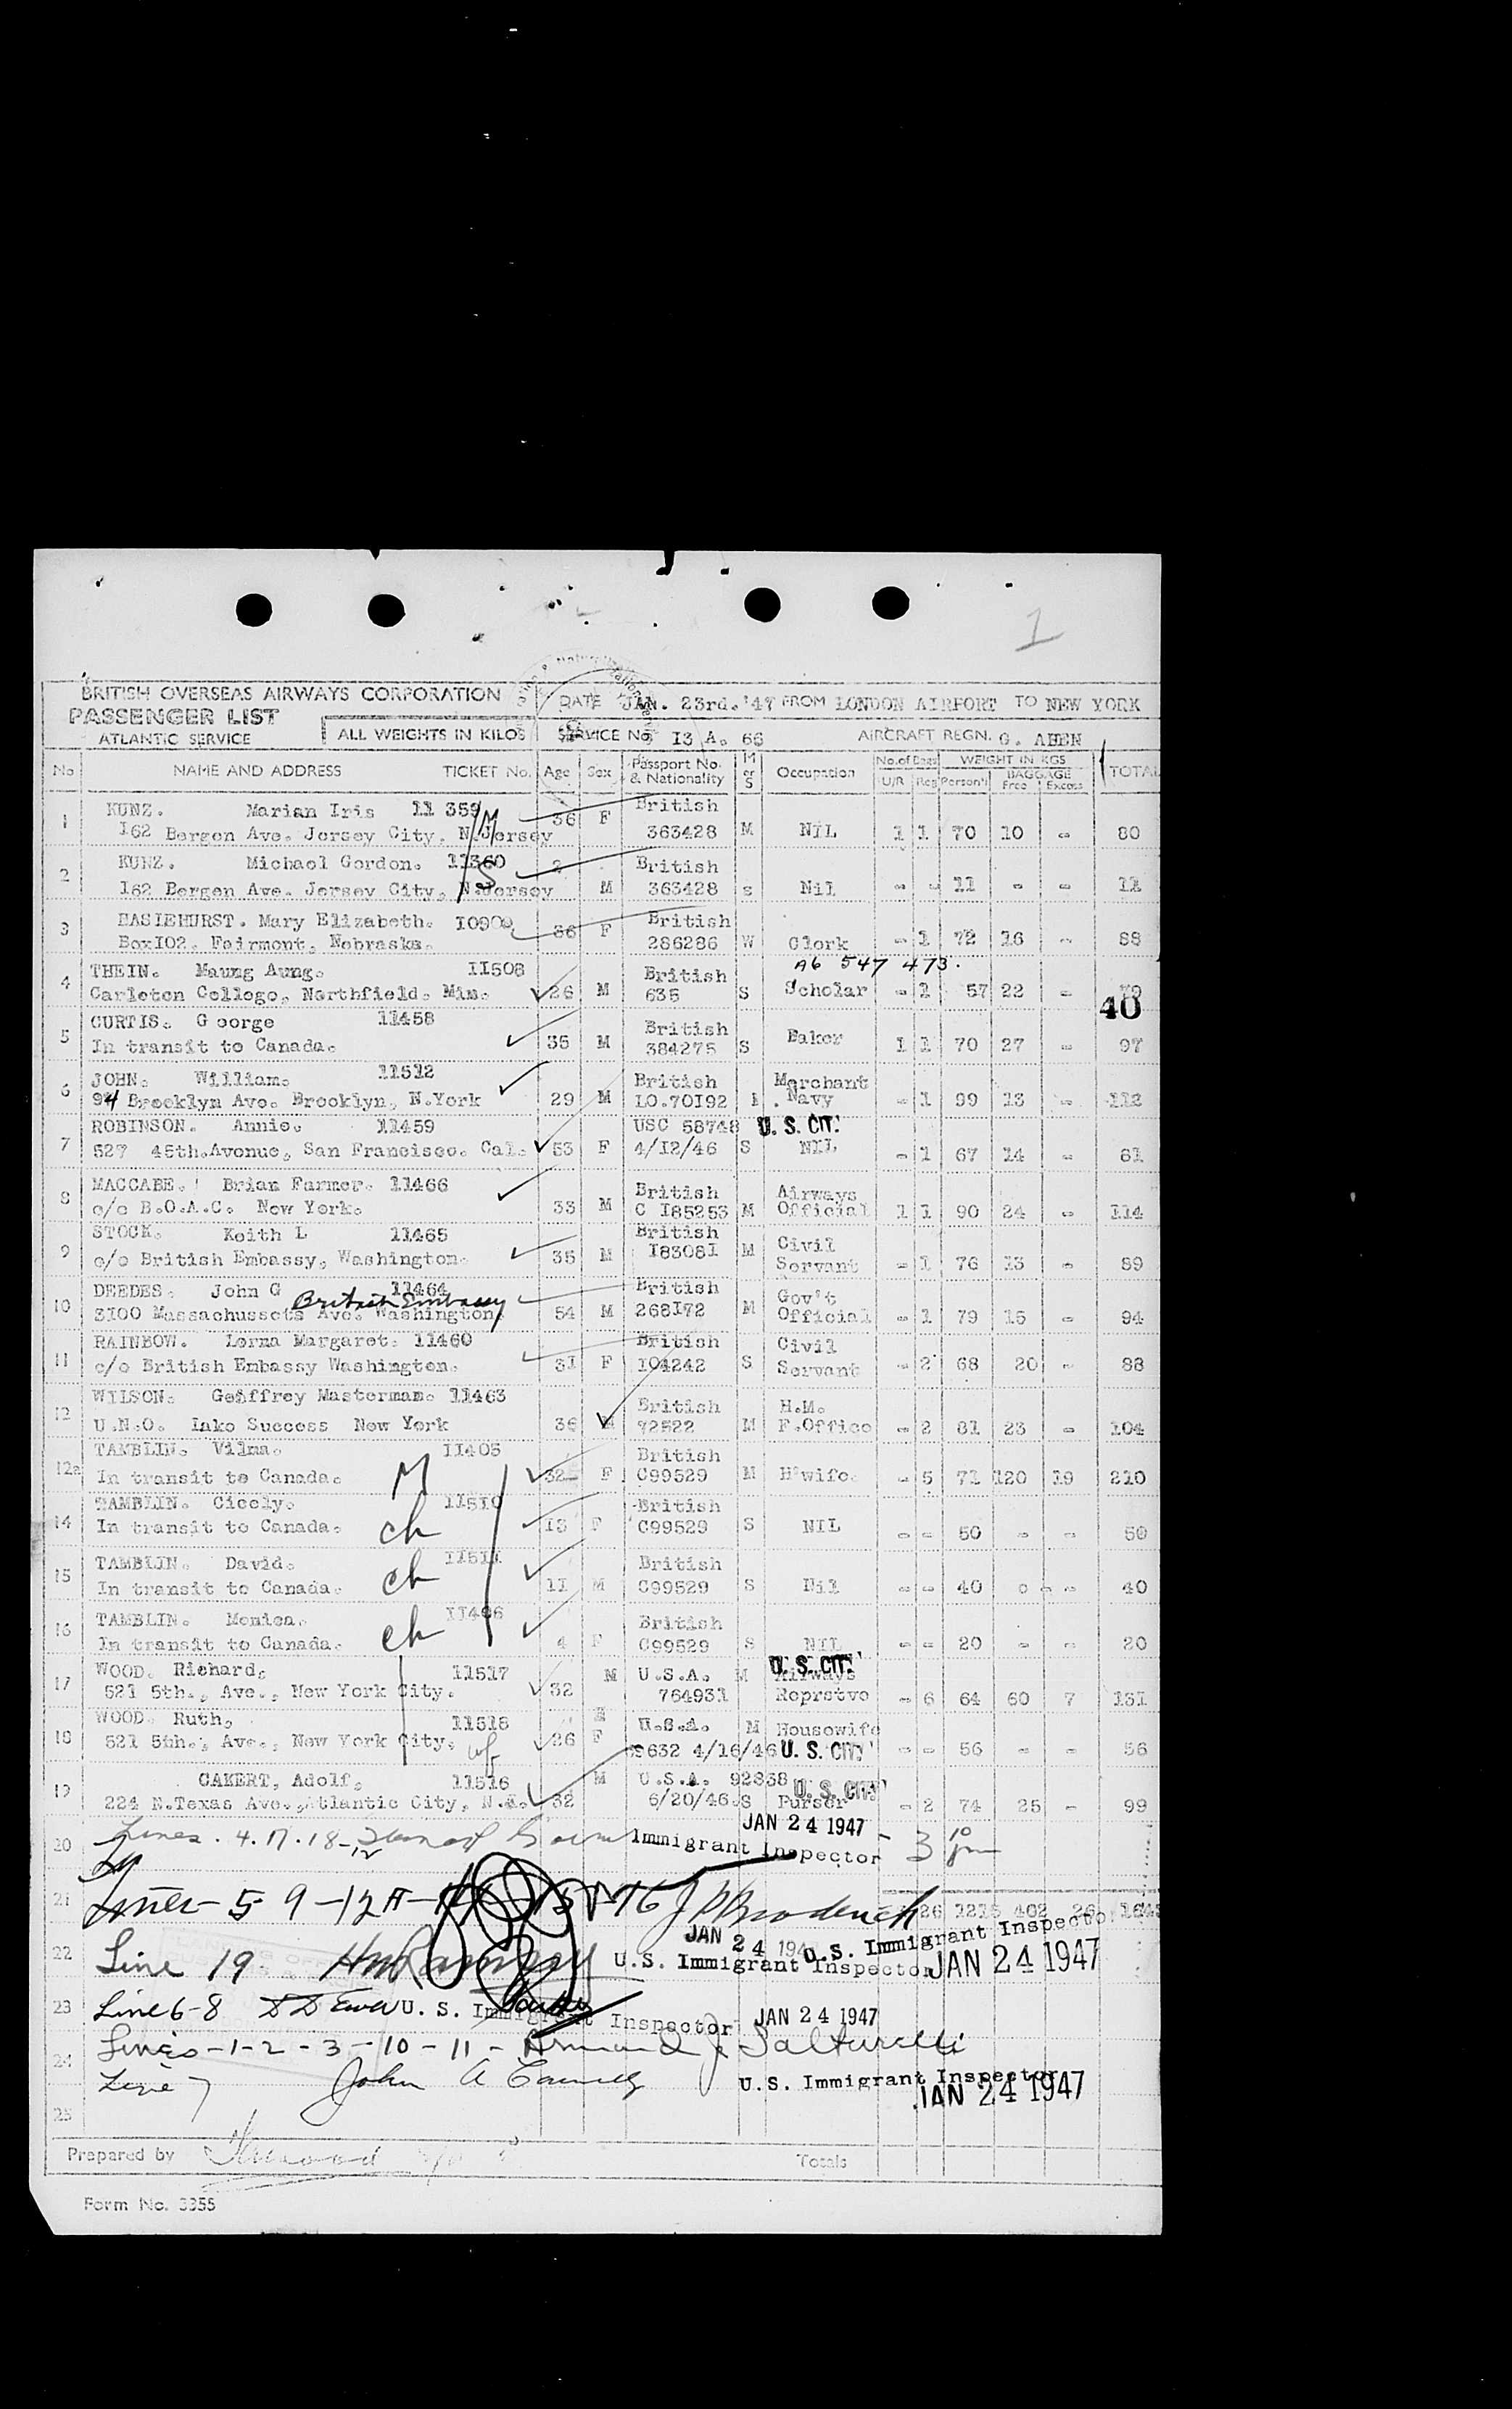 1
BRITISH OVERSEAS AIRWAYS CORPORATION
PASSENGER LIST
ATLANTIC SERVICE ALL WEIGHTS IN KILOS
DATE JAN. 23rd. '47 FROM LONDON AIRPORT TO NEW YORK
SERVICE No. I3 A. 66 AIRCRAFT REGN. G. AHEN
No NAME AND ADDRESS TICKET No. Age Sex Passport No. & Nationality M or S Occupation No. of Bags U/R Reg WEIGHT IN KGS Person'l BAGGAGE Free Excess TOTAL
1 KUNZ. Marian Iris 11 359 M 36 F British
162 Bergen Ave. Jersey City, N.Jersey 363428 M NIL 1 1 70 10 - 80
2 KUNZ. Michael Gordon. 11360 S 2 British
162 Bergen Ave. Jersey City, N.Jersey M 363428 s Nil - - 11 - - 11
3 Mary Elizabeth. 36 F British
BoxI02, Fairmont, Nebraska. 286286 W Clerk - 1 72 16 - 88
A6 547 473.
4 THEIN. Maung Aung. II508 British
Carleton College, Northfield. Min. 26 M 635 S Scholar - 1 57 22 - 79
40
5 CURTIS. G eorge 11458 British
In transit to Canada. 35 M 384275 S Baker 1 1 70 27 - 97
6 JOHN. William. 11512 British Merchant
94 Brooklyn Ave. Brooklyn, N.York 29 M LO.70I92 Navy - 1 99 13 - 112
7 ROBINSON. Annie. 11459 USC 58748 U. S. CIT.
527 45th.Avenue, San Francisco. Cal. 53 F 4/I2/46 S NIL - 1 67 14 - 81
8 MACCABE. Brian Farmer. 11466 British Airways
c/o B.O.A.C. New York. 33 M C I85253 M Official 1 1 90 24 - 114
9 STOCK. Keith L 11465 British Civil
c/o British Embassy, Washington. 35 M I8308I M Servant - 1 76 13 - 89
10 DEEDES. John G 11464 British Embassy British Gov't
3I00 Massachussets Ave. Washington. 54 M 268I72 M Official - 1 79 15 - 94
11 RAINBOW. Lorna Margaret. 11460 British Civil
c/o British Embassy Washington. 31 F I04242 S Servant - 2 68 20 - 88
12 WILSON. Geoffrey Masterman. 11463 British H.M.
U.N.O. Lake Success New York 36 M 72522 M F.Office - 2 81 23 - 104
12a TAMBLIN. Vilma. 11405 British
In transit to Canada. M 32 F C99529 M H'wife. - 5 71 120 19 210
14 TAMBLIN. Cicely. 11510 British
In transit to Canada. ch 13 F C99529 S NIL - - 50 - - 50
15 TAMBLIN. David. 11511 British
In transit to Canada. ch 11 M C99529 S Nil - - 40 - - 40
16 TAMBLIN. Monica. 11406 British
In transit to Canada. ch 4 F C99529 S NIL - - 20 - - 20
17 WOOD. Richard, 11517 M U.S.A. M U. S. CIT. Airways
521 5th., Ave., New York City. 32 764931 Reprstve - 6 64 60 7 131
18 WOOD. Ruth, 11518 U.S.A. M Housewife
521 5th., Ave., New York City. wf 26 F 9632 4/16/46 U. S. CIT. - - 56 - - 56
19 CAKERT, Adolf, 11516 M U.S.A. 92838 U. S. CIT.
224 N.Texas Ave.,Atlantic City, N.J. 32 6/20/46 S Purser - 2 74 25 - 99
JAN 24 1947
20 Lines . 4. 17. 18- 12 Immigrant Inspector - 3 10 pm
21 Lines - 5 9 - 12A - 15 - 16 J P Broderick 26 1215 402 26
JAN 24 1947 U.S. Immigrant Inspector
22 Line 19 U.S. Immigrant Inspector JAN 24 1947
23 Line 6-8 U. S. Immigrant Inspector JAN 24 1947
24 Lines -1-2-3-10-11- Armand J. Salturelli
Line 7 John A U.S. Immigrant Inspector
JAN 24 1947
25
Prepared by Totals
Form No. 3355